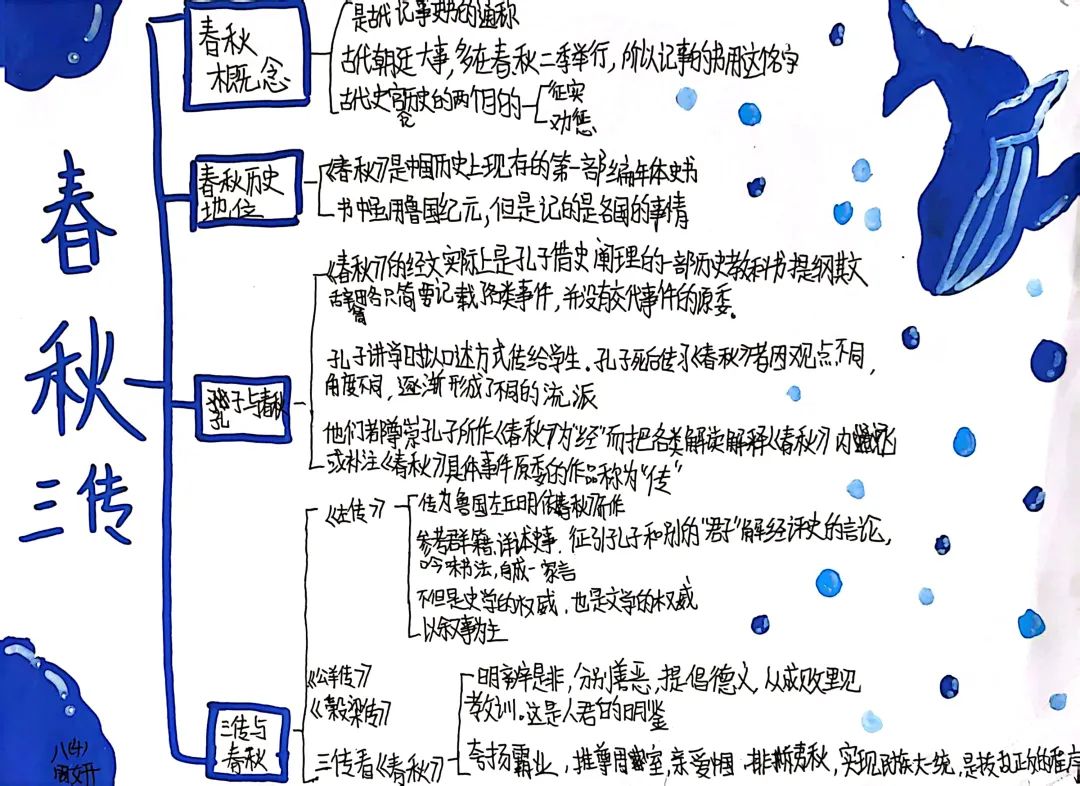 春秋三传
春秋
概念
是古代记事史书的通称
古代朝廷大事，多在春秋二季举行，所以记事的书用这个名字
古代史官记历史的两个目的
征实
劝惩
春秋历史
地位
《春秋》是中国历史上现存的第一部编年体史书
书中虽用鲁国纪元，但是记的是各国的事情
孔子与春秋
《春秋》的经文实际上是孔子借史阐理的一部历史教科书提纲其文
只简要记载各类事件，并没有交代事件的原委。
孔子讲学时以口述方式传给学生．孔子死后传习《春秋》者因观点不同，
角度不同，逐渐形成了不同的流派
他们都尊崇孔子所作《春秋》为“经”而把各类解读解释《春秋》内
或补注《春秋》具体事件原委的作品称为“传”
三传与
春秋
《左传》
传为鲁国左丘明依春秋所作
参考群籍，详述史事．征引孔子和别的“君子”解经评史的言论，
吟味书法，自成一家言
不但是史学的权威．也是文学的权威
以叙事为主
《公羊传》
《穀梁传》
三传看《春秋》
明辨是非，分别善恶，提倡德义，从成败里见
教训．这是人君的明鉴
夸扬霸业，推尊周室，亲爱中国，排斥夷狄，实现民族大一统，是拨乱反正的程序
八(4)